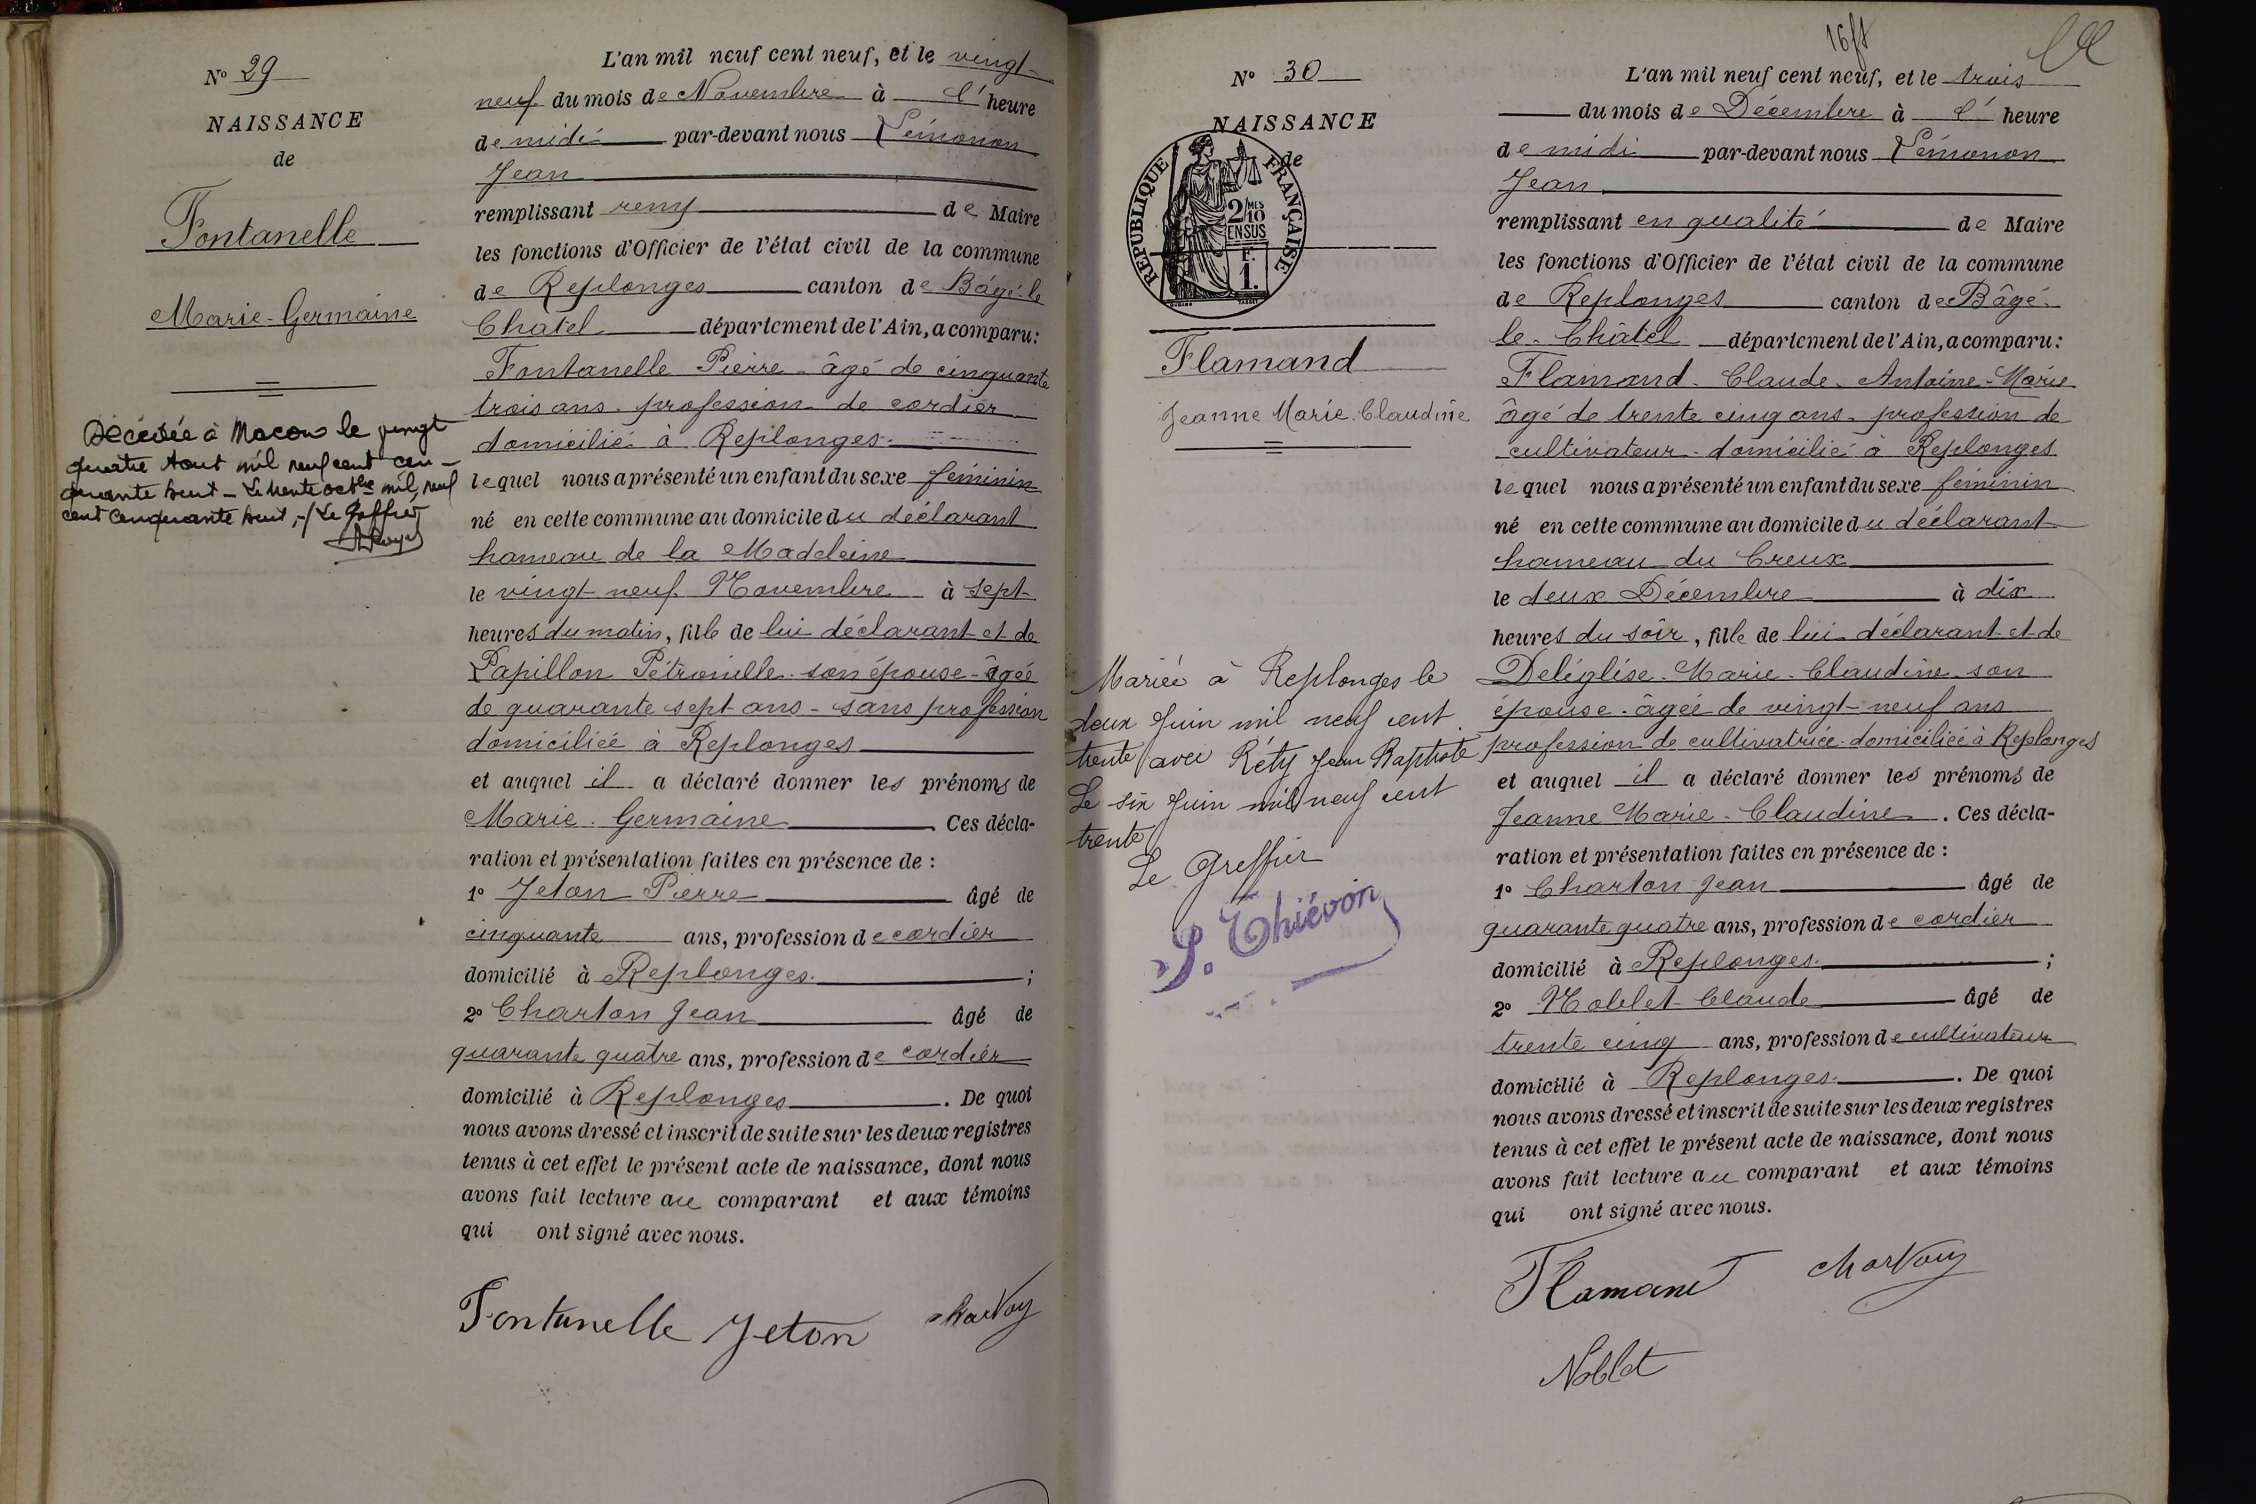 N° 29
NAISSANCE
de
Fontanelle
Marie-Germaine
Décédée à Macon le vingt
quatre Aout mil neuf cent cin-
quante huit - Le trente octbre mil neuf
cent cinquante huit, -/ Le Greffier
L'an mil neuf cent neuf, et le vingt-
neuf du mois de Novembre à l' heure
de midi par-devant nous Lémonon
Jean
remplissant de Maire
les fonctions d'Officier de l'état civil de la commune
de Replonges canton de Bâgé-le
Chatel département de l'Ain, a comparu:
Fontanelle Pierre - âgé de cinquante
trois ans - profession de cordier
domicilié à Replonges.
lequel nous a présenté un enfant du sexe féminin
né en cette commune au domicile du déclarant
hameau de la Madeleine
le vingt-neuf Novembre à sept
heures du matin, fille de lui déclarant et de
Papillon Pétronille son épouse - âgée
de quarante sept ans - sans profession
domiciliée à Replonges
et auquel il a déclaré donner les prénoms de
Marie-Germaine Ces décla-
ration et présentation faites en présence de :
1° Jeton Pierre âgé de
cinquante ans, profession de cordier
domicilié à Replonges ;
2° Charton Jean âgé de
quarante quatre ans, profession de cordier
domicilié à Replonges . De quoi
nous avons dressé et inscrit de suite sur les deux registres
tenus à cet effet le présent acte de naissance, dont nous
avons fait lecture au comparant et aux témoins
qui ont signé avec nous.
Fontanelle Jeton
16ft
N° 30
NAISSANCE
de
RÉPUBLIQUE FRANÇAISE
2/MES
10
EN SUS
F.
1.
Flamand
Jeanne Marie-Claudine
Mariée à Replonges le
deux Juin mil neuf cent
trente avec Réty Jean Baptiste
Le six Juin mil neuf cent
trente
Le Greffier
S. Thiévon
L'an mil neuf cent neuf, et le trois
du mois de Décembre à l' heure
de midi par-devant nous Lémonon
Jean
remplissant en qualité de Maire
les fonctions d'Officier de l'état civil de la commune
de Replonges canton de Bâgé-
le-Châtel département de l'Ain, a comparu:
Flamand - Claude - Antoine-Marie
âgé de trente cinq ans - profession de
cultivateur - domicilié à Replonges
lequel nous a présenté un enfant du sexe féminin
né en cette commune au domicile du déclarant
hameau du Creux
le deux Décembre à dix
heures du soir, fille de lui déclarant et de
Deléglise Marie-Claudine son
épouse - âgée de vingt-neuf ans
profession de cultivatrice domiciliée à Replonges
et auquel il a déclaré donner les prénoms de
Jeanne Marie-Claudine . Ces décla-
ration et présentation faites en présence de :
1° Charton Jean âgé de
quarante quatre ans, profession de cordier
domicilié à Replonges ;
2° Noblet Claude âgé de
trente cinq ans, profession de cultivateur
domicilié à Replonges . De quoi
nous avons dressé et inscrit de suite sur les deux registres
tenus à cet effet le présent acte de naissance, dont nous
avons fait lecture au comparant et aux témoins
qui ont signé avec nous.
Flamand
Noblet